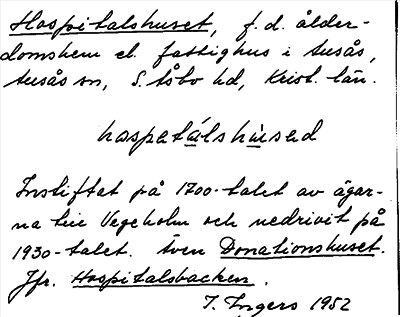 Hospitalshuset, f.d. ålder-
domshem el. fattighus i Ausås,
Ausås sn, S. Åsbo hd, Krist. län.
hɑspetálshùsəd
Instiftat på 1700-talet av ägar-
na till Vegeholm och nedrivit på
1930-talet. Även Donationshuset.
Jfr. Hospitalsbacken.
I. Ingers 1952